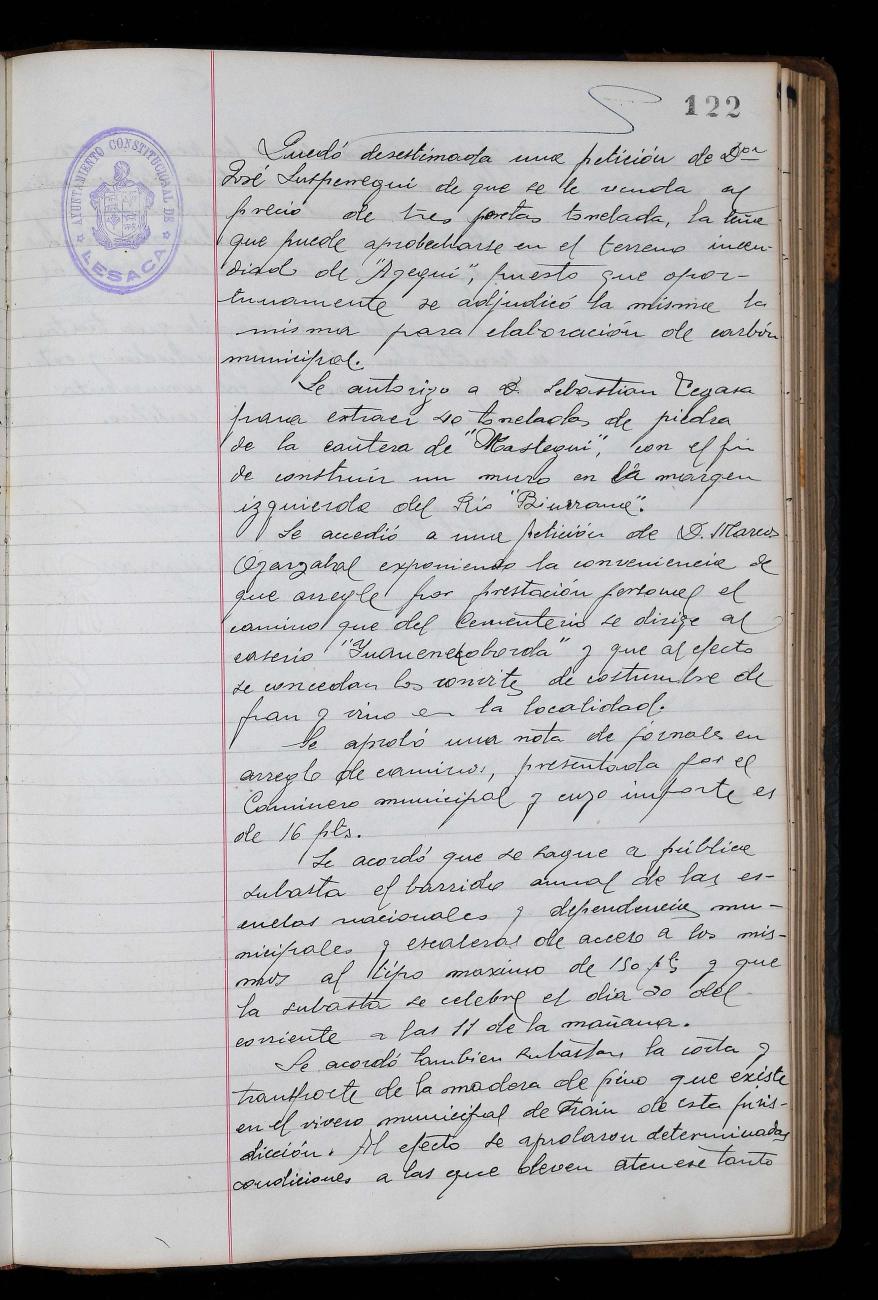 122
AYUNTAMIENTO CONSTITUCIONAL DE
LESACA
Quedó desestimada una petición de Don
José Susperregui de que se le venda al
precio de tres pesetas tonelada, la leña
que puede aprobecharse en el terreno incen-
diad de "Agegui", puesto que opor-
tunamente se adjudicó la misma la
misma para elaboración de carbón
municipal.
Se autorizo a D. Sebastian Tegasa
para extraer 40 toneladas de piedra
de la cantera de "Mastegui", con el fin
de construir un muro en la margen
izquierda del Rio
Se accedió a una petición de D. Marcos
Ozarzabal exponiendo la conveniencia de
que arregle por prestación personal el
camino que del Cementerio se dirige al
caserio y que al efecto
se concedan los convites de costumbre de
pan y vino en la localidad.
Se aprobó una nota de jornales en
arreglo de caminos, presentada por el
Caminero municipal y cuyo importe es
de 16 pts.
Se acordó que se saque a pública
subasta el barrido anual de las es-
cuelas nacionales y dependencias mu-
nicipales y escaleras de acceso a los mis-
mos al tipo maximo de 150 pts y que
la subasta se celebre el dia 20 del
corriente a las 11 de la mañana.
Se acordó tambien subastar, la corta y
transporte de la madera de pino que existe
en el vivero municipal de Frain de esta juris-
dicción. Al efecto se aprobaron determinadas
condiciones a las que deven atenerse tanto